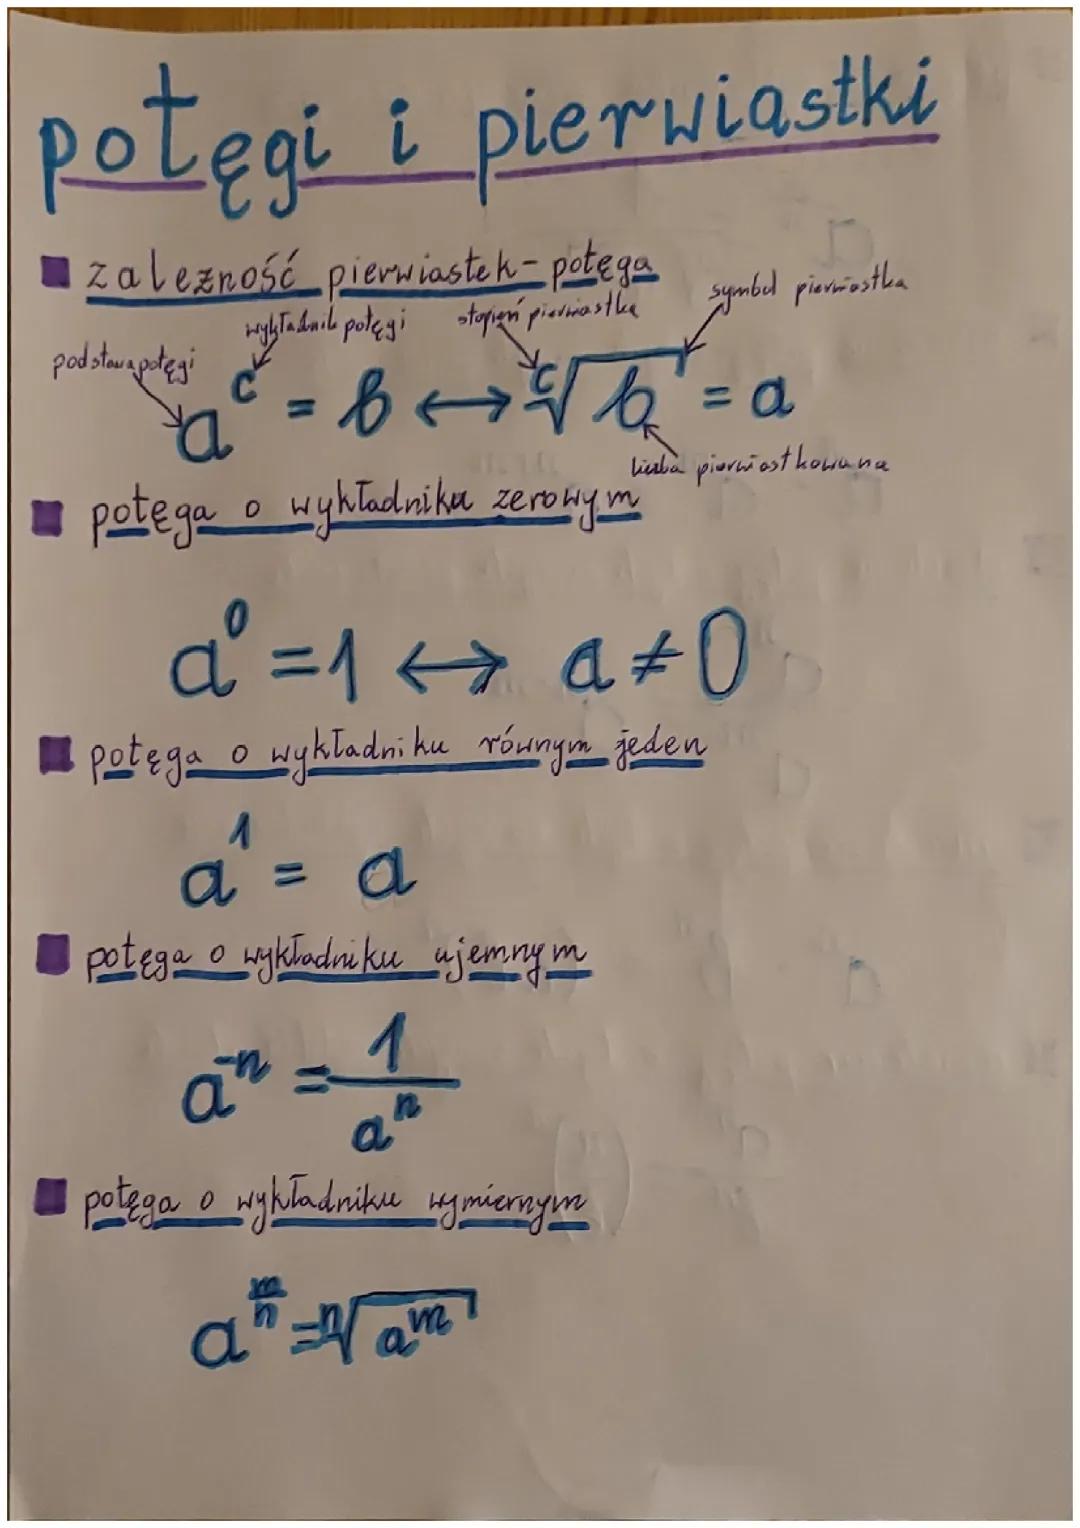 potęgi i pierwiastki
zależność pierwiastek-potęga
wykładnik potęgi stopień pierwiastka symbol pierwiastka
podstawa potęgi
a^c = b ↔ ᶜ√b = a
liczba pierwiastkowana
potęga o wykładniku zerowym
a⁰ = 1 ↔ a ≠ 0
potęga o wykładniku równym jeden
a¹ = a
potęga o wykładniku ujemnym
a⁻ⁿ = 1/aⁿ
potęga o wykładniku wymiernym
a^(m/n) = ⁿ√a^m